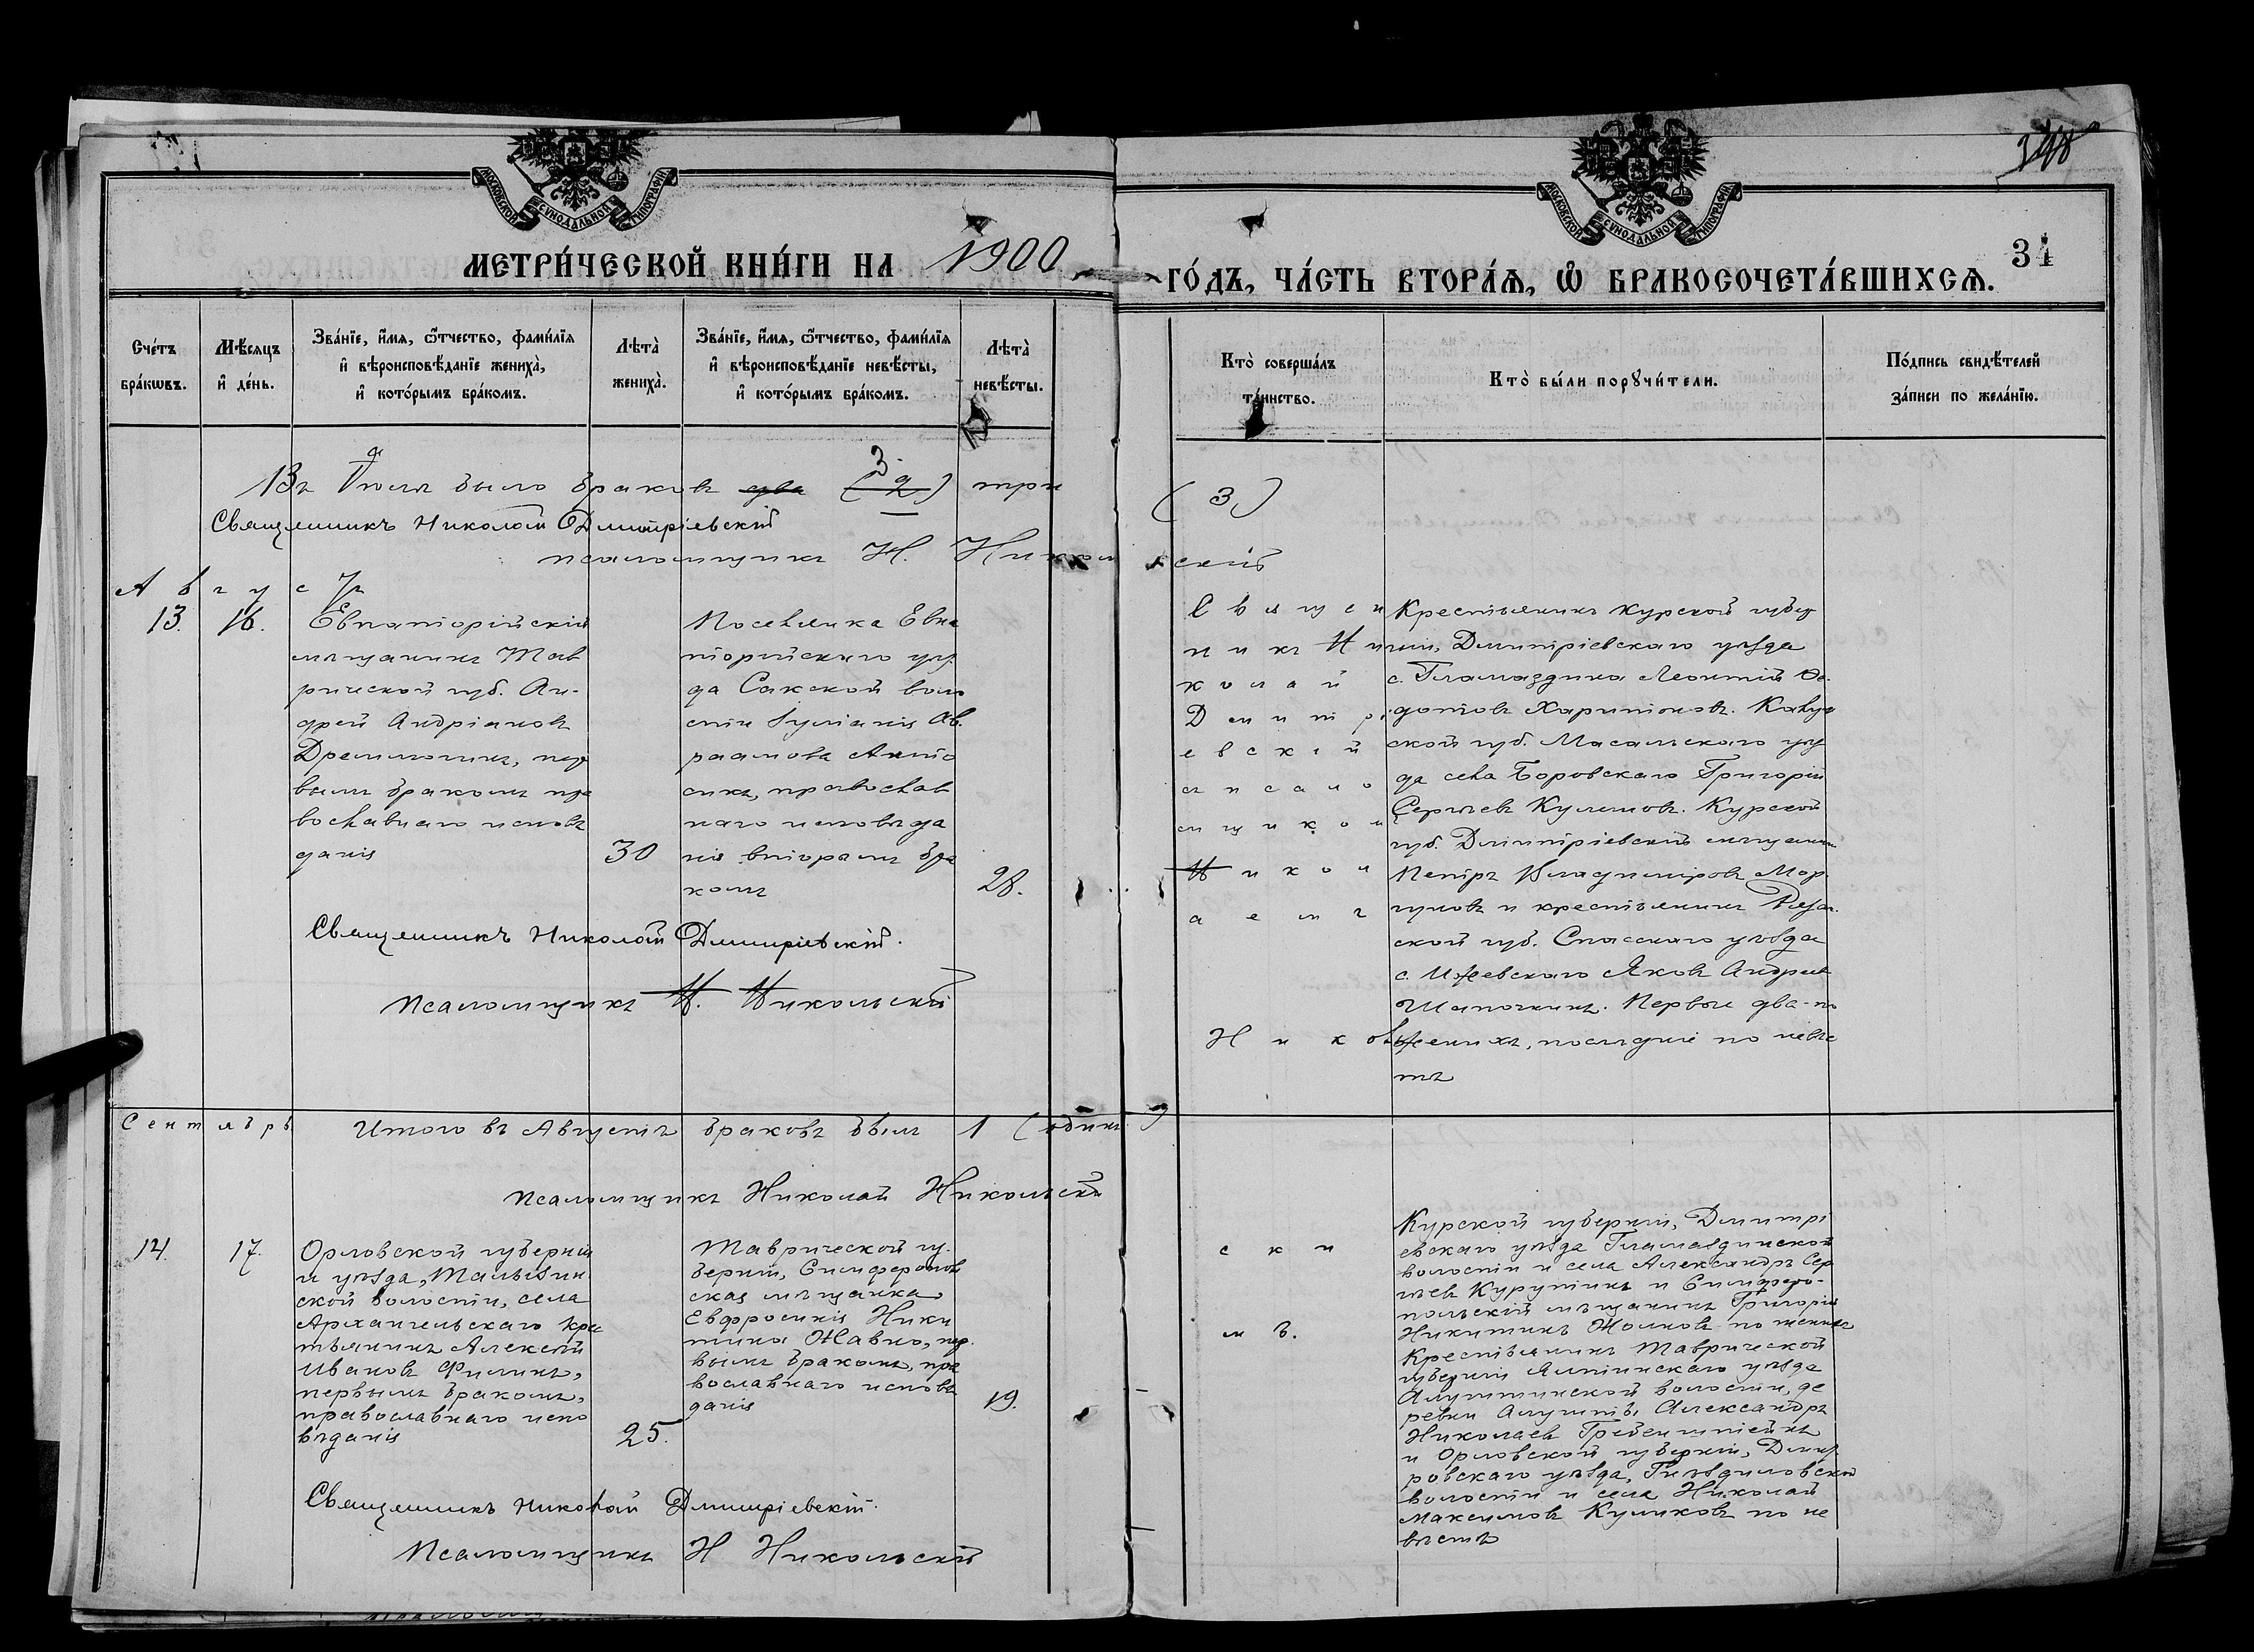 348
34
МОСКОВСКОЙ СѴНОДАЛЬНОЙ ТИПОГРАФІИ
МОСКОВСКОЙ СѴНОДАЛЬНОЙ ТИПОГРАФІИ
МЕТРИ́ЧЕСКОЙ КНИ́ГИ НА 1900
ГО́ДЪ, ЧА́СТЬ ВТОРА́Ѧ, Ѡ҆ БРАКОСОЧЕТА́ВШИХСѦ.
Сче́тъ
бра́кѡвъ.
Мѣ́сяцъ
и҆ де́нь.
Зва́нїе, и҆́мѧ, ѻ҆́тчество, фами́лїѧ
и҆ вѣроисповѣ́данїе жениха̀,
и҆ кото́рымъ бра́комъ.
Лѣта̀
жениха̀.
Зва́нїе, и҆́мѧ, ѻ҆́тчество, фами́лїѧ
и҆ вѣроисповѣ́данїе невѣ́сты,
и҆ кото́рымъ бра́комъ.
Лѣта̀
невѣ́сты.
Кто̀ соверша́лъ
та́инство.
Кто̀ бы́ли порꙋчи́тели.
По́дпись свидѣ́телей
за́писи по жела́нїю.
Въ Іюлѣ было браковъ два (2) 3 три (3)
Священникъ Николай Дмитріевскій
псаломщикъ Н. Никольскій
Августъ
13.
16.
Евпаторійскій
мѣщанинъ Тав
рической губ. Ан-
дрей Андріановъ
Дремлюгинъ, пер
вымъ бракомъ пра
вославнаго исповѣ
данія
30
Поселянка Евпа
торійскаго уѣз
да Сакской воло
сти Іуліанія Ав
раамова Анто
сикъ, православ
наго исповѣда
нія вторымъ бра
комъ
28.
Священ
никъ Ни
колай
Дмитрі
евскій
съ псало
мщикомъ
Никол
аемъ
Николь
Крестьянинъ Курской губер
ніи, Дмитріевскаго уѣзда
с. Гламаздина Леонтій Ѳе
дотовъ Харитоновъ. Калуж
ской губ. Масальскаго уѣз
да села Боровскаго Григорій
Сергѣевъ Кулешовъ. Курской
губ. Дмитріевскій мѣщанинъ
Петръ Владиміровъ Мор
гуновъ и крестьянинъ Рязан
ской губ. Спасскаго уѣзда
с. Ижевскаго Яковъ Андреевъ
Шапочкинъ. Первые два-по
женихѣ, послѣдніе по невѣс
тѣ
Священникъ Николай Дмитріевскій.
Псаломщикъ Н. Никольскій
Сентябрь
Итого въ Августѣ браковъ былъ 1 (одинъ)
Псаломщикъ Николай Никольскій
14.
17.
Орловской губерніи
и уѣзда,
ской волости, села
Архангельскаго крес
тьянинъ Алексѣй
Ивановъ Филинъ,
первымъ бракомъ,
православнаго испо
вѣданія
25.
Таврической гу
берніи, Симферополь
ская мѣщанка
Евфросинія Ники
тина Жавко, пер
вымъ бракомъ, пра
вославнаго исповѣ
данія
19.
ски
мъ.
Курской губерніи, Дмитрі
евскаго уѣзда Гламаздинской
волости и села Александръ Сер
гѣевъ Курутинъ и Симферо-
польскій мѣщанинъ Григорій
Никитинъ по женихѣ
Крестьянинъ Таврической
губерніи Ялтинскаго уѣзда
Алуштинской волости, де
ревни Алушты Александръ
Николаевъ
и Орловской губерніи, Дмит
ровскаго уѣзда, Гнѣздиловской
волости и села Николай
Максимовъ Куликовъ по не
вѣстѣ
Священникъ Николай Дмитріевскій.
Псаломщикъ Н Никольскій